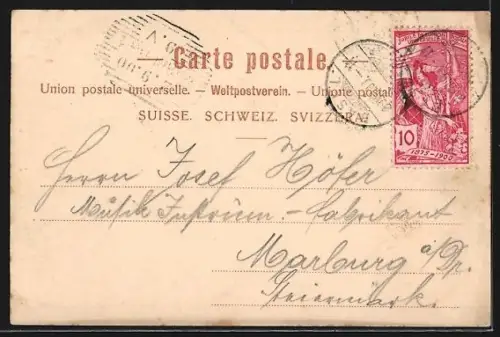 Carte postale.
Union postale universelle. – Weltpostverein. – Unione postale
SUISSE. SCHWEIZ. SVIZZERA.
10
1875-1900
Herrn Josef Höfer
Musik Instrum.-Fabrikant
Marburg a/Dr.
Steiermark.